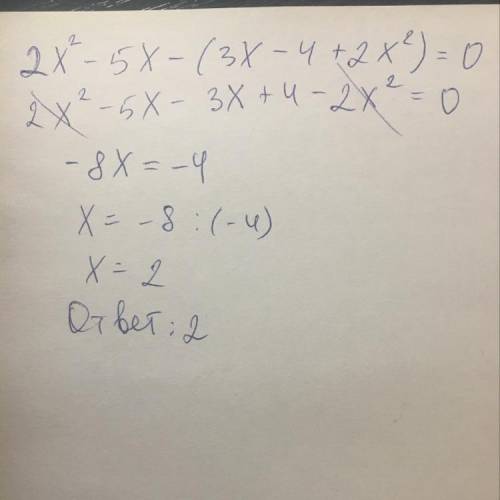 2x² - 5x - (3x - 4 + 2x²) = 0
2x² - 5x - 3x + 4 - 2x² = 0
-8x = -4
x = -8 : (-4)
x = 2
Ответ: 2